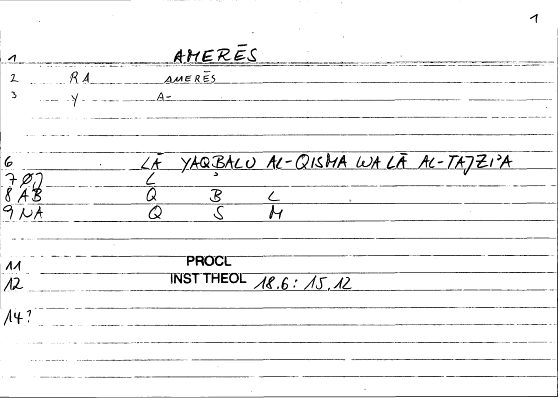 1
1 AMERĒS
2 RA AMERĒS
3 Y A-
6 LĀ YAQBALU AL-QISMA WA LĀ AL-TAJZI'A
7 ØJ L
8 AB Q B L
9 NA Q S M
11 PROCL
12 INST THEOL 18.6: 15.12
14?